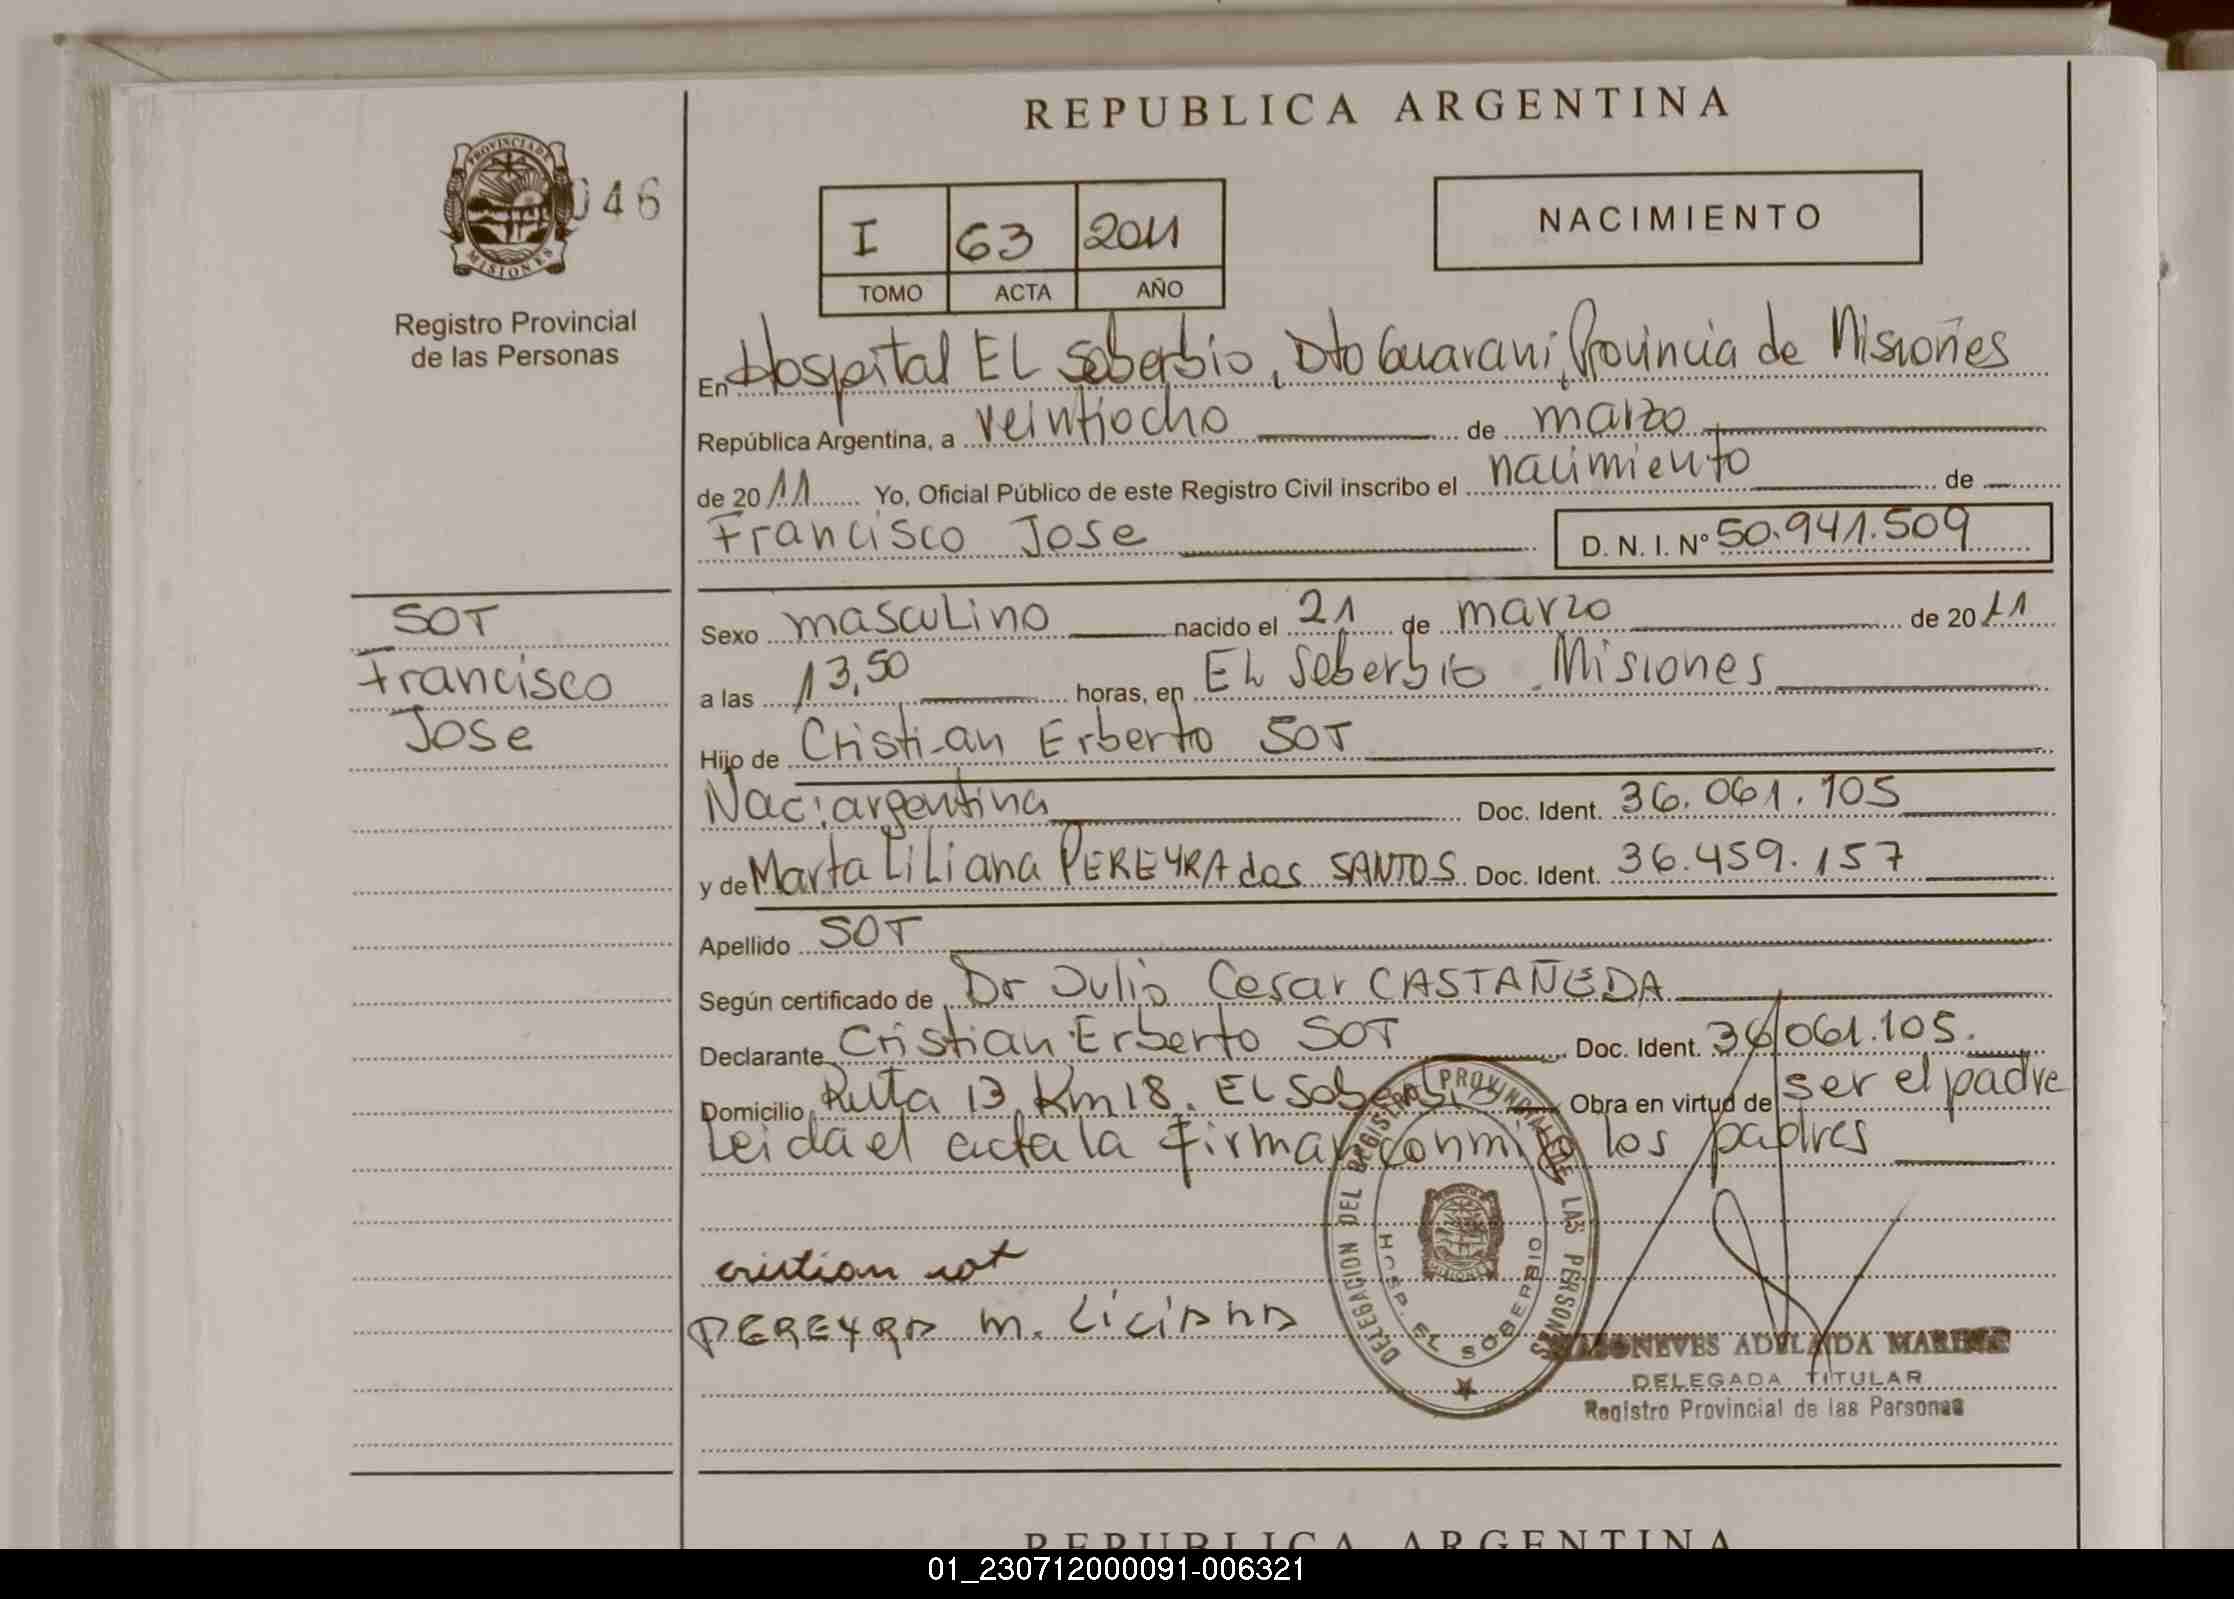 REPUBLICA ARGENTINA
PROVINCIA DE
MISIONES
046
Registro Provincial
de las Personas
I 63 2011
TOMO ACTA AÑO
NACIMIENTO
En Hospital EL Soberbio, Dto Guarani, Provincia de Misiones
República Argentina, a veintiocho de marzo
de 2011 Yo, Oficial Público de este Registro Civil inscribo el nacimiento de
Francisco Jose D. N. I. Nº 50.941.509
SOT
Francisco
Jose
Sexo masculino nacido el 21 de marzo de 2011
a las 13,50 horas, en EL Soberbio Misiones
Hijo de Cristian Erberto SOT
Nac: argentina Doc. Ident. 36.061.105
y de Marta Liliana PEREYRA dos SANTOS Doc. Ident. 36.459.157
Apellido SOT
Según certificado de Dr Julio Cesar CASTAÑEDA
Declarante Cristian Erberto SOT Doc. Ident. 36.061.105.
Domicilio Ruta 13 Km 18. EL Soberbio Obra en virtud de ser el padre
Leida el acta la firman conmigo los padres
cristian sot
PEREYRA M. LiLiANA
DELEGACION DEL REGISTRO PROVINCIAL DE LAS PERSONAS
HOSP. EL SOBERBIO
NEVES ADELAIDA
DELEGADA TITULAR
Registro Provincial de las Personas
REPUBLICA ARGENTINA
01_230712000091-006321